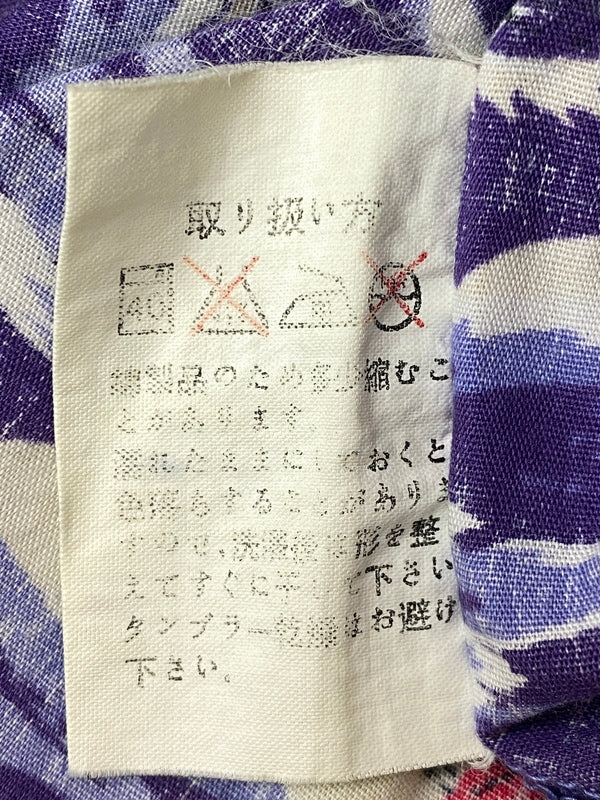 取り扱い方
綿製品のため多少縮むこ
とがあります。
濡れたままにしておくと
色落ちすることがありま
すので、洗濯後は形を整
えてすぐに干して下さい
タンブラー乾燥はお避け
下さい。